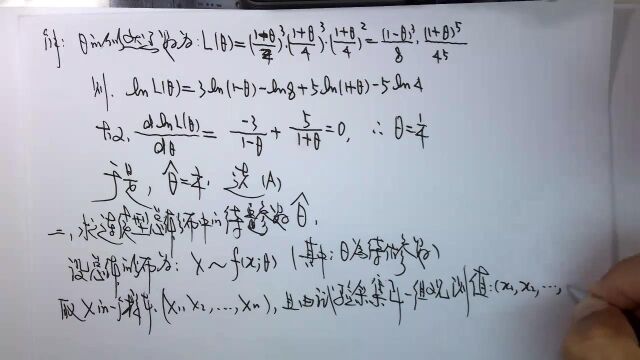 解: θ的似然函数为: L(θ)=(\frac{1-θ}{2})^3·(\frac{1+θ}{4})^3·(\frac{1+θ}{4})^2=\frac{(1-θ)^3}{8}·\frac{(1+θ)^5}{4^5}
则. ln L(θ)=3ln(1-θ)-ln8+5ln(1+θ)-5ln4
\frac{dlnL(θ)}{dθ}=\frac{-3}{1-θ}+\frac{5}{1+θ}=0, ∴ θ=\frac{1}{4}
于是, \hat{θ}=\frac{1}{4}. 选(A)
二、求连续型总体分布中的待估参数\hat{θ}.
设总体的分布为: X~f(x;θ) (其中: θ为待估参数)
取X的一个样本(X₁,X₂,…,Xₙ), 且由试验采集到一组观测值:(x₁,x₂,…,